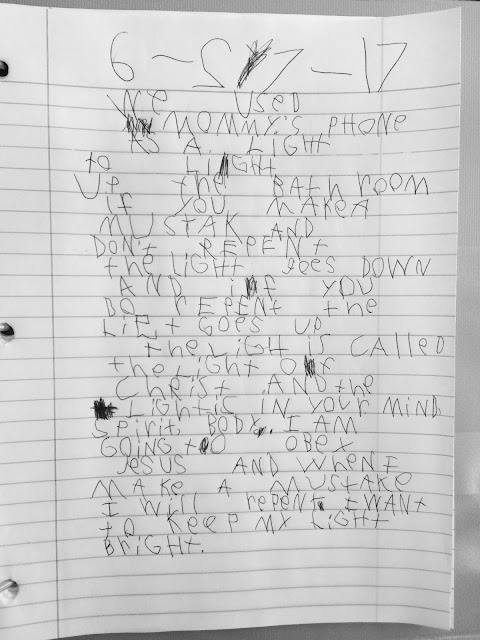 6-27-17
We used
Mommy's phone
as a light
to light
up the bathroom
if you make a
mustak and
don't repent
the light goes down
and if you
do repent the
liet goes up
the ligh is called
the light of
Christ. and the
light is in your mind,
spirit, body. I am
going to obey
Jesus and when I
make a mustake
I will repent. I want
to keep my light
bright.